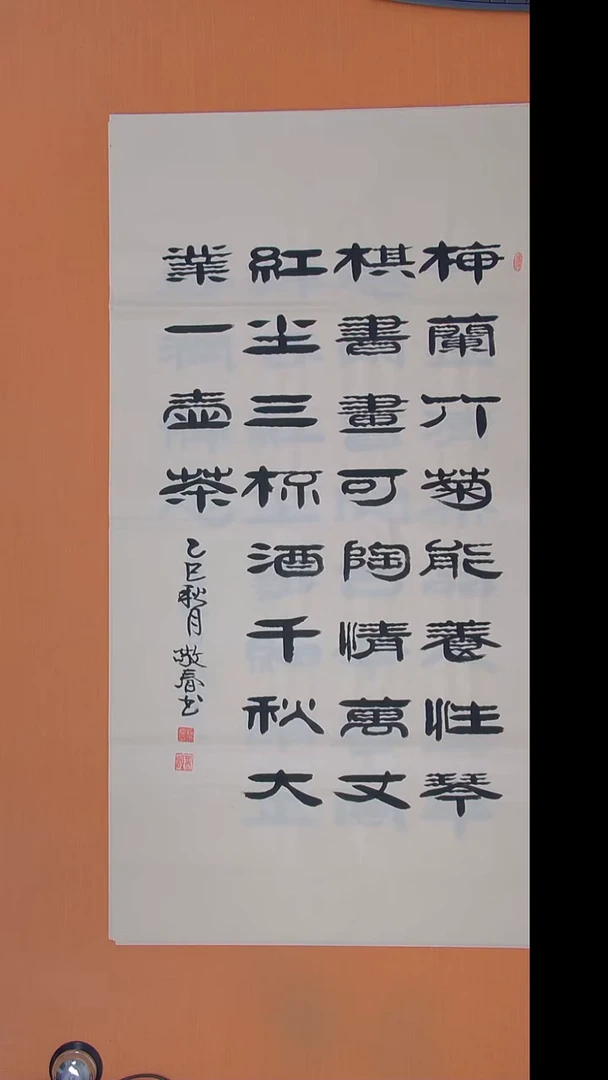 梅蘭竹菊能養性琴
棋書畫可陶情萬丈
紅尘三杯酒千秋大
業一壺茶
乙巳秋月敬春书